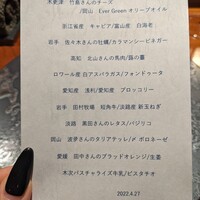 木更津　竹島さんのチーズ
/岡山　Ever Green オリーブオイル
浙江省産　キャビア/富山産　白海老
岩手　佐々木さんの牡蠣/カラマンシービネガー
高知　北山さんの馬肉/蕗の薹
ロワール産 白アスパラガス/フォンドゥータ
愛知産　浅利/愛知産　ブロッコリー
岩手　田村牧場　短角牛/淡路産 新玉ねぎ
淡路　黒田さんのレタス/バジリコ
岡山　波夛さんのタリアテッレ/〆 ボロネーゼ
愛媛　田中さんのブラッドオレンジ/生姜
木次パスチャライズ牛乳/ピスタチオ
2022.4.27